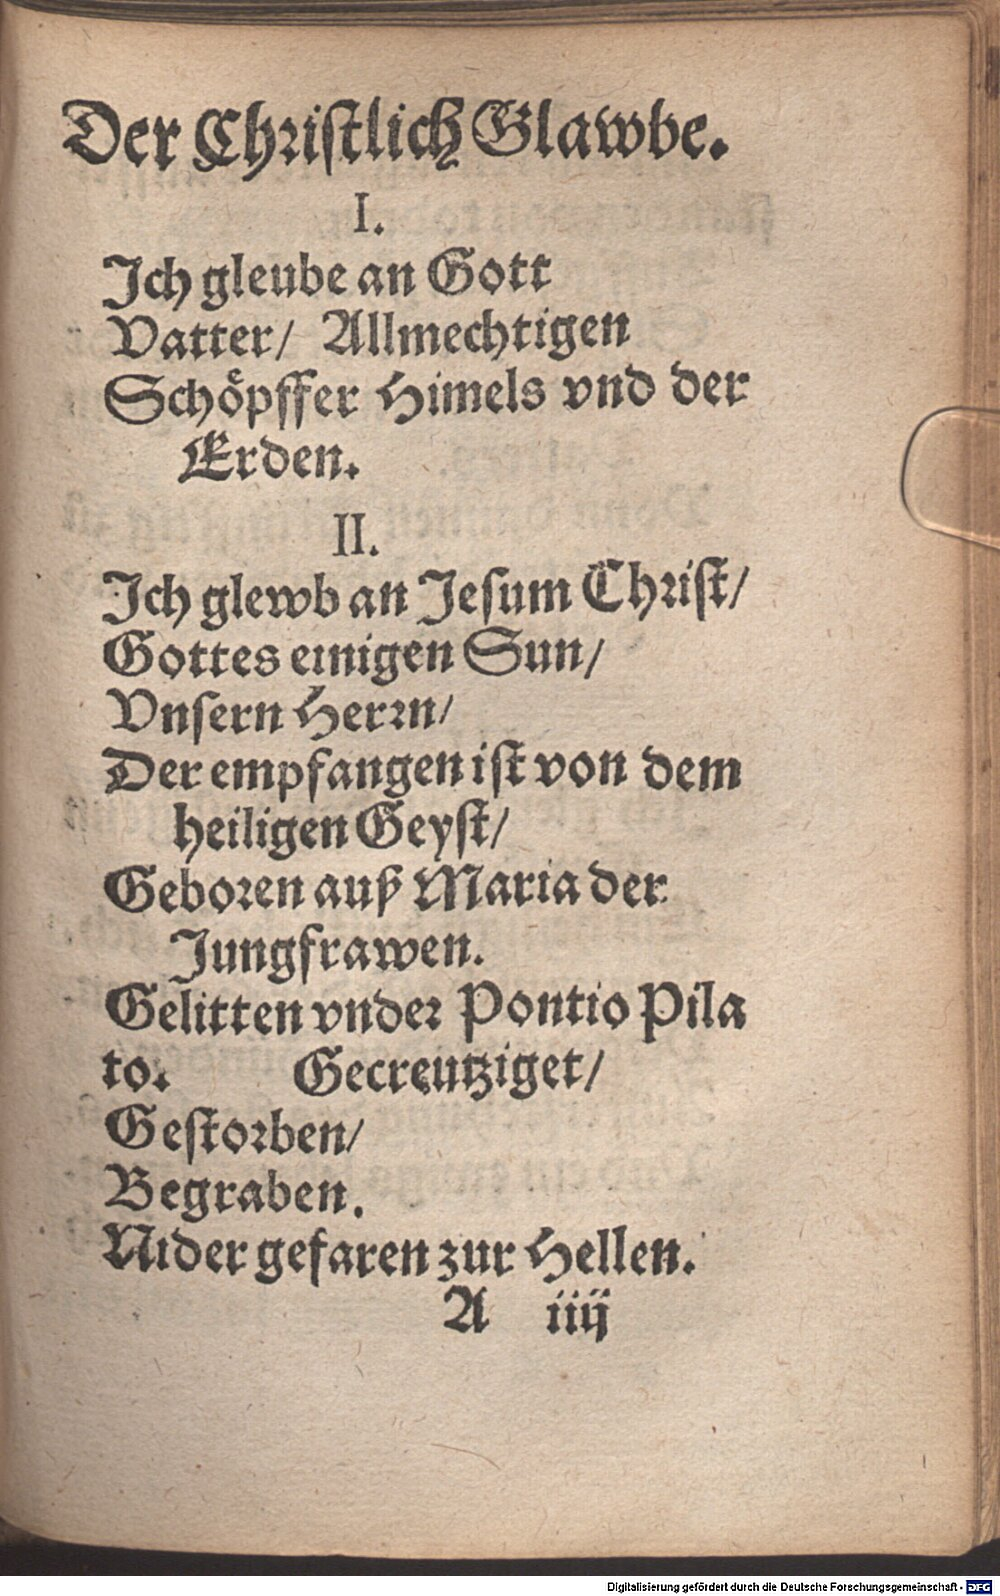 Der Chriſtlich Glawbe.
I.
Ich gleube an Gott
Vatter/ Allmechtigen
Schöpffer Himels vnd der
Erden.
II.
Ich glewb an Jeſum Chriſt/
Gottes einigen Sun/
Vnſern Herrn/
Der empfangen iſt von dem
heiligen Geyſt/
Geboren auß Maria der
Jungfrawen.
Gelitten vnder Pontio Pila
to. Gecreutziget/
Geſtorben/
Begraben.
Nider gefaren zur Hellen.
A iiij
Digitalisierung gefördert durch die Deutsche Forschungsgemeinschaft - DFG